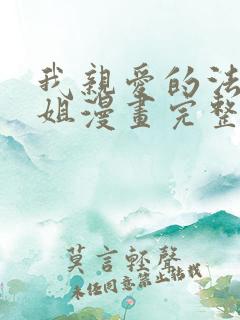 我親愛的法
姐漫畫完整
莫言輕聲
未任同意禁止轉載